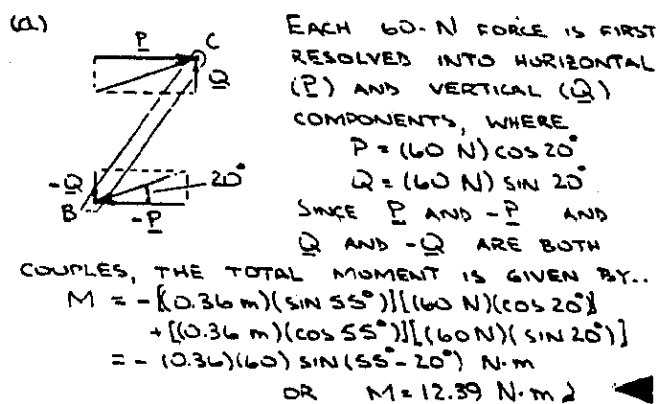 (a)
P
C
Q
-Q
20°
B
-P
EACH 60-N FORCE IS FIRST
RESOLVED INTO HORIZONTAL
(P) AND VERTICAL (Q)
COMPONENTS, WHERE
P = (60 N) COS 20°
Q = (60 N) SIN 20°
SINCE P AND -P AND
Q AND -Q ARE BOTH
COUPLES, THE TOTAL MOMENT IS GIVEN BY..
M = -[(0.36 m)(SIN 55°)][(60 N)(COS 20°)]
+[(0.36 m)(COS 55°)][(60N)(SIN 20°)]
= - (0.36)(60) SIN(55°-20°) N·m
OR M = 12.39 N·m ↲